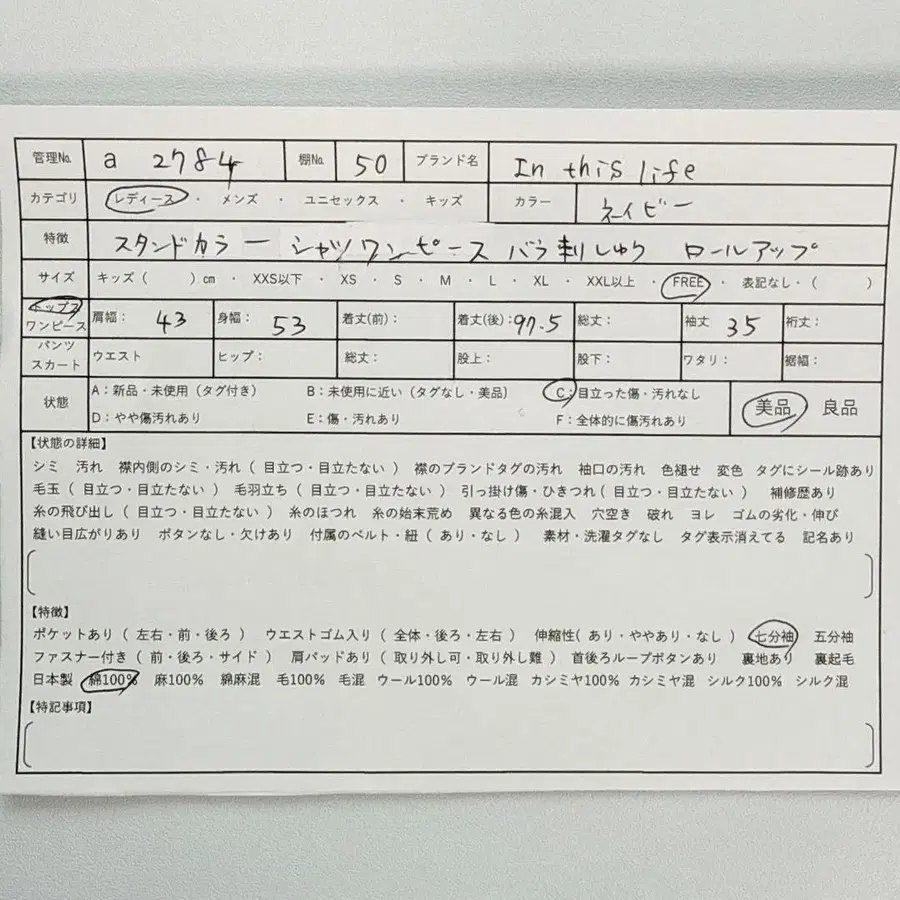 管理No. a 2784 棚No. 50 ブランド名 In this life
カテゴリ レディース ・ メンズ ・ ユニセックス ・ キッズ カラー ネイビー
特徴 スタンドカラー シャツワンピース バラ刺しゅう ロールアップ
サイズ キッズ ( ) cm ・ XXS以下 ・ XS ・ S ・ M ・ L ・ XL ・ XXL以上 ・ FREE ・ 表記なし・( )
トップス
ワンピース 肩幅: 43 身幅: 53 着丈(前): 着丈(後): 97.5 総丈: 袖丈 35 裄丈:
パンツ
スカート ウエスト ヒップ: 総丈: 股上: 股下: ワタリ: 裾幅:
状態 A:新品・未使用 (タグ付き) B:未使用に近い (タグなし・美品) C:目立った傷・汚れなし 美品 良品
D:やや傷汚れあり E:傷・汚れあり F:全体的に傷汚れあり
【状態の詳細】
シミ 汚れ 襟内側のシミ・汚れ ( 目立つ・目立たない ) 襟のブランドタグの汚れ 袖口の汚れ 色褪せ 変色 タグにシール跡あり
毛玉 ( 目立つ・目立たない ) 毛羽立ち ( 目立つ・目立たない ) 引っ掛け傷・ひきつれ ( 目立つ・目立たない ) 補修歴あり
糸の飛び出し ( 目立つ・目立たない ) 糸のほつれ 糸の始末荒め 異なる色の糸混入 穴空き 破れ ヨレ ゴムの劣化・伸び
縫い目広がりあり ボタンなし・欠けあり 付属のベルト・紐 ( あり・なし ) 素材・洗濯タグなし タグ表示消えてる 記名あり
【特徴】
ポケットあり ( 左右・前・後ろ ) ウエストゴム入り ( 全体・後ろ・左右 ) 伸縮性 ( あり・ややあり・なし ) 七分袖 五分袖
ファスナー付き ( 前・後ろ・サイド ) 肩パッドあり ( 取り外し可・取り外し難 ) 首後ろループボタンあり 裏地あり 裏起毛
日本製 綿100% 麻100% 綿麻混 毛100% 毛混 ウール100% ウール混 カシミヤ100% カシミヤ混 シルク100% シルク混
【特記事項】